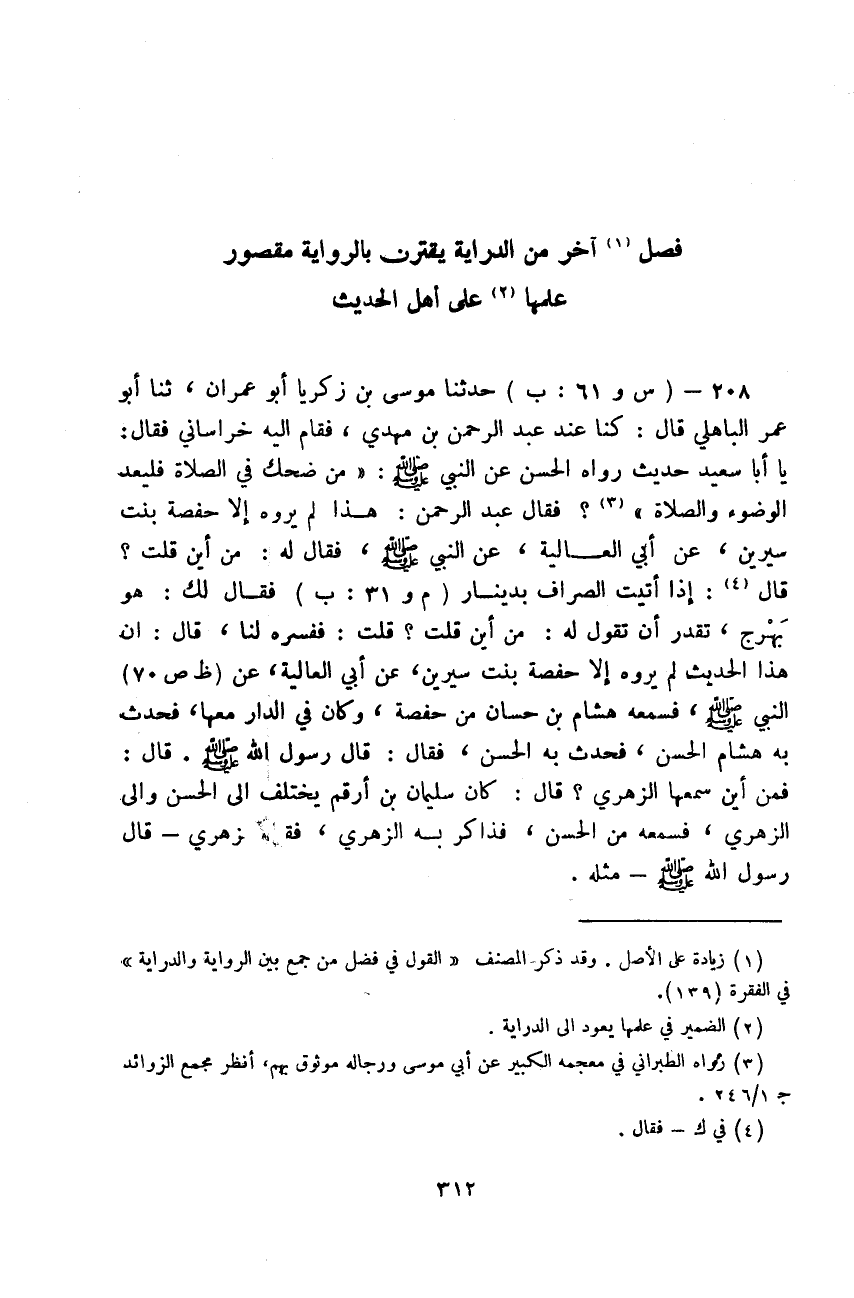 فصل (١) آخر من الدراية يقترن بالرواية مقصور
علمها (٢) على أهل الحديث
٢٠٨ – ( س و ٦١ : ب ) حدثنا موسى بن زكريا أبو عمران ، ثنا أبو
عمر الباهلي قال : كنا عند عبد الرحمن بن مهدي ، فقام اليه خراساني فقال:
يا أبا سعيد حديث رواه الحسن عن النبي ﷺ : « من ضحك في الصلاة فليعد
الوضوء والصلاة » (٣) ؟ فقال عبد الرحمن : هـذا لم يروه إلا حفصة بنت
سيرين ، عن أبي العـــالية ، عن النبي ﷺ ، فقال له : من أين قلت ؟
قال (٤) : إذا أتيت الصراف بدينـار ( م و ٣١ : ب ) فقـال لك : هو
بَهْرج ، تقدر أن تقول له : من أين قلت ؟ قلت : ففسره لنا ، قال : ان
هذا الحديث لم يروه إلا حفصة بنت سيرين، عن أبي العالية، عن (ظ ص ٧٠)
النبي ﷺ ، فسمعه هشام بن حسان من حفصة ، وكان في الدار معها، فحدث
به هشام الحسن ، فحدث به الحسن ، فقال : قال رسول الله ﷺ . قال :
فمن أين سمعها الزهري ؟ قال : كان سليمان بن أرقم يختلف الى الحسن والى
الزهري ، فسمعه من الحسن ، فذاكر بـه الزهري ، فقـ زهري – قال
رسول الله ﷺ – مثله .
(١) زيادة على الأصل . وقد ذكر المصنف « القول في فضل من جمع بين الرواية والدراية »
في الفقرة (١٣٩).
(٢) الضمير في علمها يعود الى الدراية .
(٣) رواه الطبراني في معجمه الكبير عن أبي موسى ورجاله موثوق بهم، أنظر مجمع الزوائد
ج ٢٤٦/١ .
(٤) في ك – فقال .
٣١٢